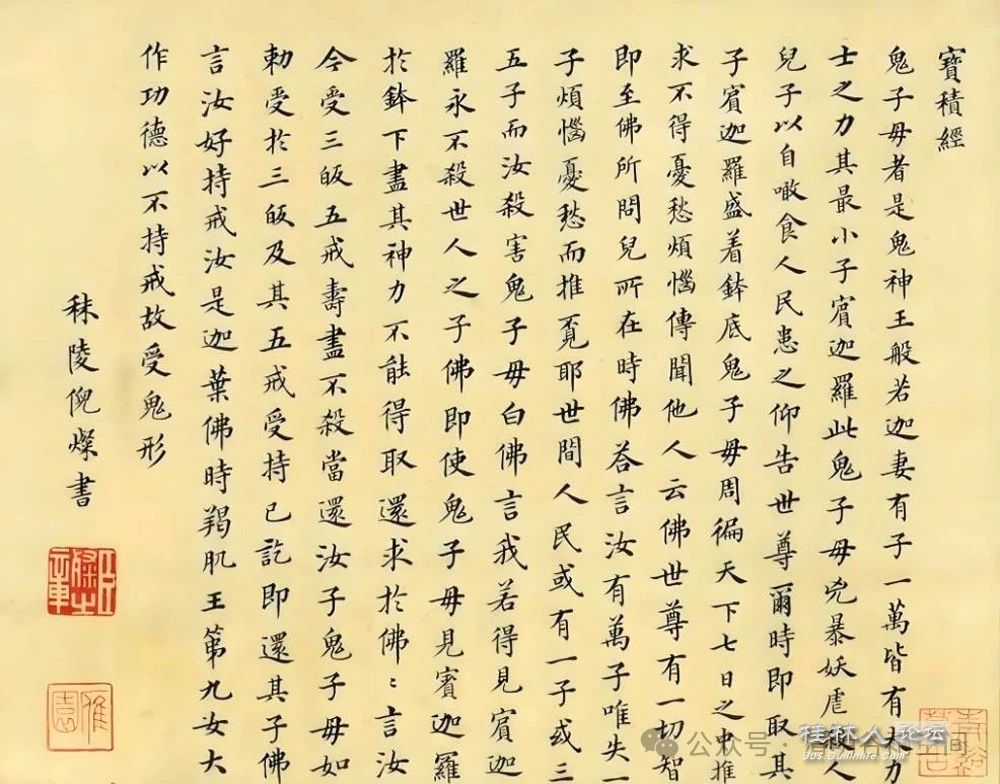 寶積經
鬼子母者是鬼神王般若迦妻有子一萬皆有大力
士之力其最小子賓迦羅此鬼子母兇暴妖虐殺人
兒子以自噉食人民患之仰告世尊爾時即取其
子賓迦羅盛着鉢底鬼子母周徧天下七日之中推
求不得憂愁煩惱傳聞他人云佛世尊有一切智
即至佛所問兒所在時佛荅言汝有萬子唯失一
子煩惱憂愁而推覔耶世間人民或有一子或三
五子而汝殺害鬼子母白佛言我若得見賓迦
羅永不殺世人之子佛即使鬼子母見賓迦羅
於鉢下盡其神力不能得取還求於佛〻言汝
今受三皈五戒壽盡不殺當還汝子鬼子母如
勅受於三皈及其五戒受持已訖即還其子佛
言汝好持戒汝是迦葉佛時羯肌王第九女大
作功德以不持戒故受鬼形
秣陵倪燦書
雁園
桂林人论坛
bbs.guilinlife.com
公众号